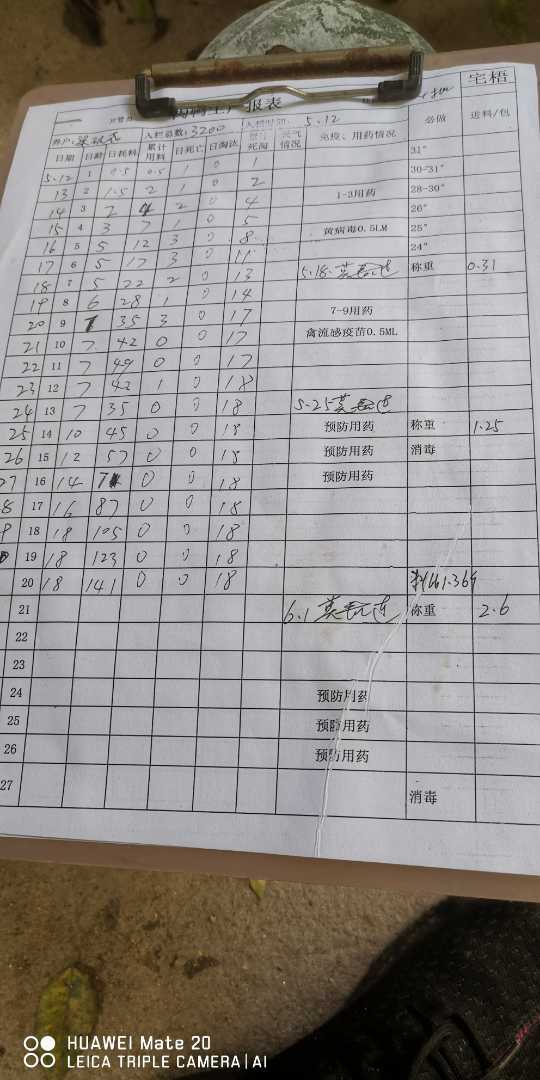 报表
宅梧
养户: 入栏总数: 3200 5.12
日期 日龄 日耗料 累计用料 日死亡 日淘汰 死淘 天气情况 免疫、用药情况 必做 进料/包
5.12 1 0.5 0.5 1 0 1 31°
13 2 1.5 2 1 0 2 30-31°
14 3 2 4 2 0 4 1-3用药 28-30°
15 4 3 7 1 0 5 26°
16 5 5 12 3 0 8 黄病毒0.5LM 25°
17 6 5 17 3 0 11 24°
18 7 5 22 2 0 13 5.18 称重 0.31
19 8 6 28 1 0 14
20 9 7 35 3 0 17 7-9用药
21 10 7 42 0 0 17 禽流感疫苗0.5ML
22 11 7 49 0 0 17
23 12 7 42 1 0 18
24 13 7 35 0 0 18 5-25
25 14 10 45 0 0 18 预防用药 称重 1.25
26 15 12 57 0 0 18 预防用药 消毒
27 16 14 71 0 0 18 预防用药
8 17 16 87 0 0 18
9 18 18 105 0 0 18
19 18 123 0 0 18
20 18 141 0 0 18
21 6.1 称重 2.6
22
23
24 预防用药
25 预防用药
26 预防用药
27 消毒
HUAWEI Mate 20
LEICA TRIPLE CAMERA | AI